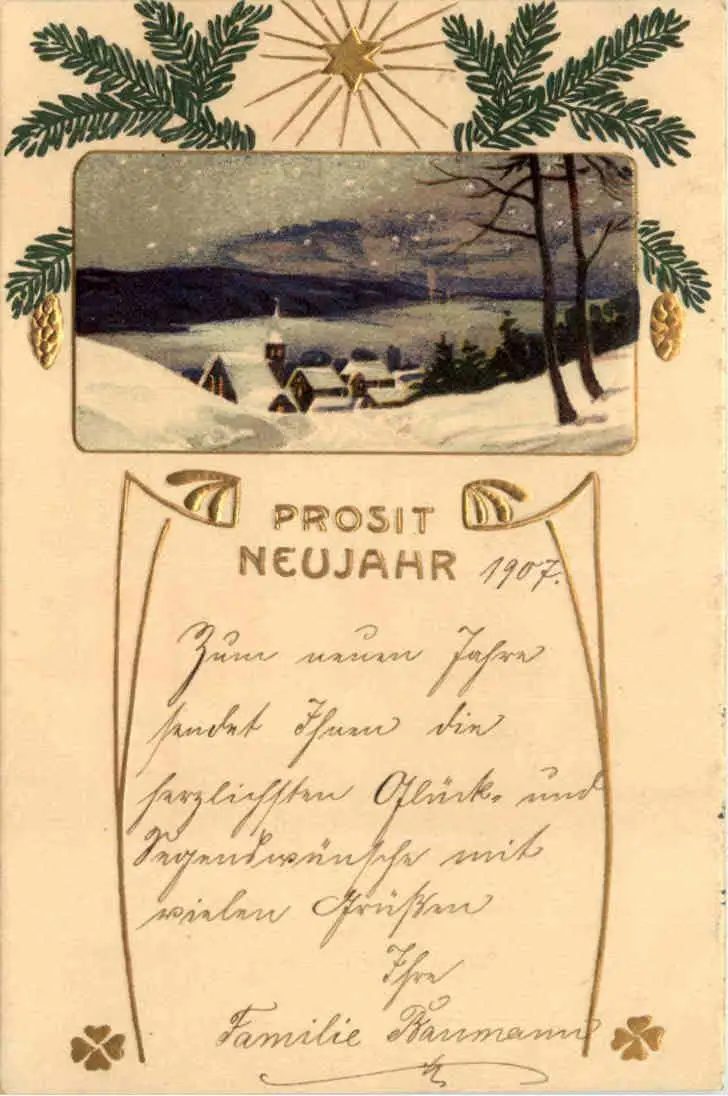 PROSIT
NEUJAHR 1907.
Zum neuen Jahre
sendet Ihnen die
herzlichsten Glück- und
Segenswünsche mit
vielen Grüßen
Ihre
Familie Baumann